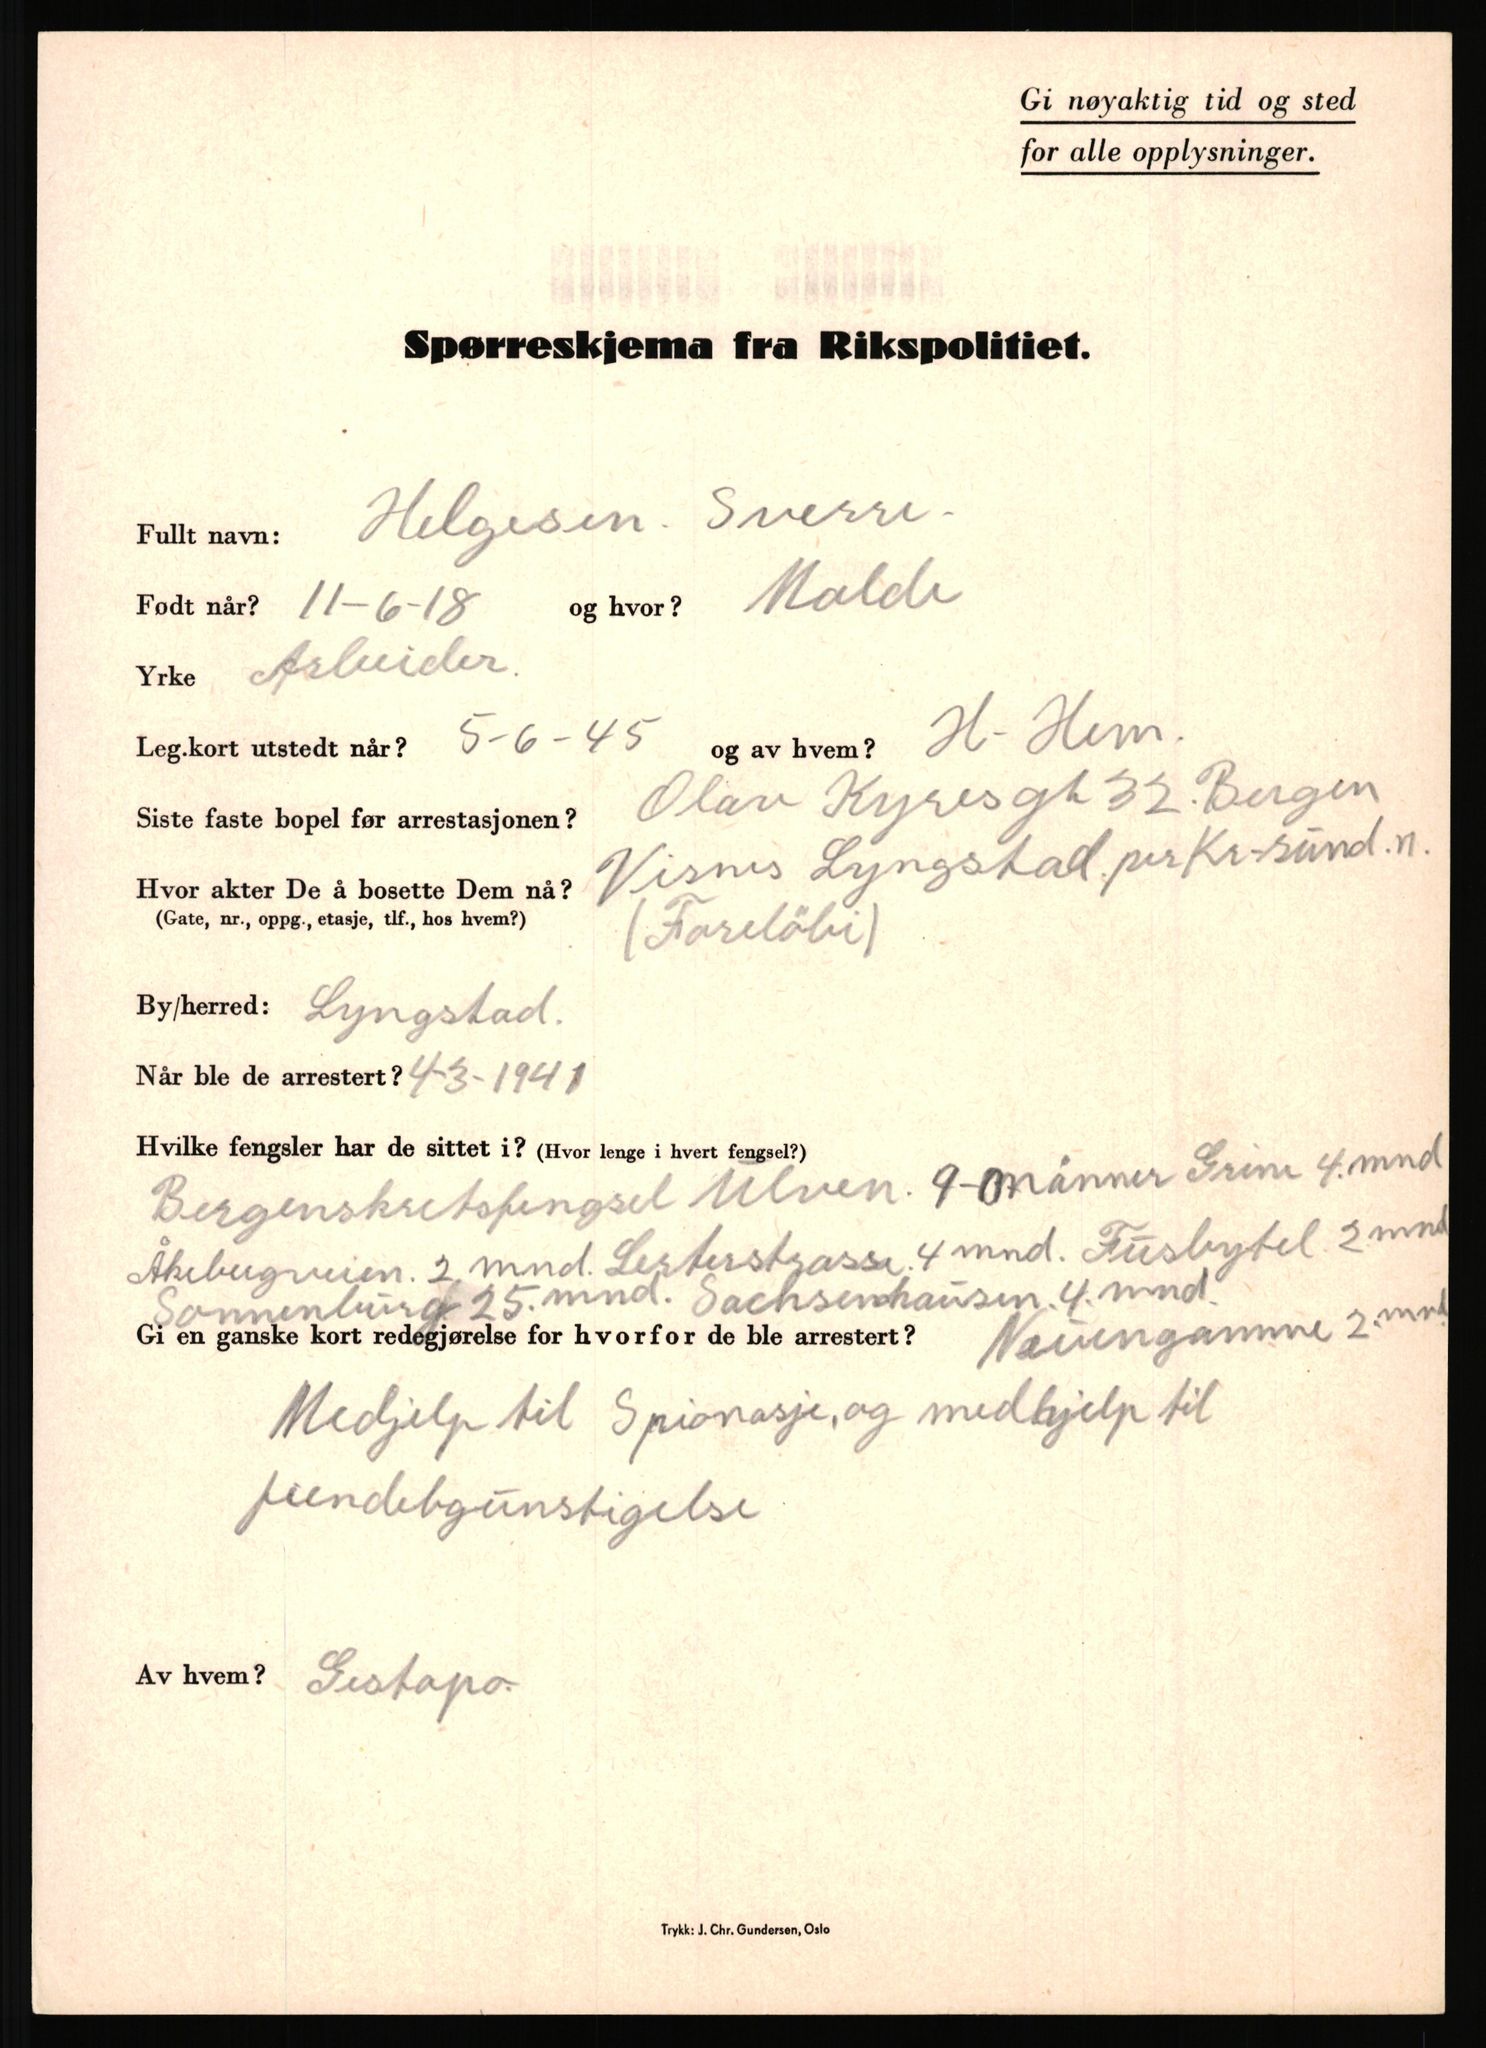 Gi nøyaktig tid og sted
for alle opplysninger.
Spørreskjema fra Rikspolitiet.
Fullt navn: Helgesen. Sverre.
Født når? 11-6-18 og hvor? Molde
Yrke Arbeider.
Leg.kort utstedt når? 5-6-45 og av hvem? H- Hem.
Siste faste bopel før arrestasjonen? Olav Kyresgt 32. Bergen
Hvor akter De å bosette Dem nå? Visnes Lyngstad. per Kr-sund.n.
(Gate, nr., oppg., etasje, tlf., hos hvem?) (Forelöbi)
By/herred: Lyngstad.
Når ble de arrestert? 4-3-1941
Hvilke fengsler har de sittet i? (Hvor lenge i hvert fengsel?)
Bergenskretsfengsel Ulven. 9- månner Grini 4. mnd
Åkebergveien. 2. mnd. 4 mnd. Fusbytel 2. mnd
Sonnenburg 25. mnd. Sachsenhausen. 4. mnd.
Gi en ganske kort redegjørelse for hvorfor de ble arrestert? Neuengamme 2. mnd.
Medjelp til Spionasje, og medhjelp til
fiendebgunstigelse
Av hvem? Gestapo.
Trykk: J. Chr. Gundersen, Oslo